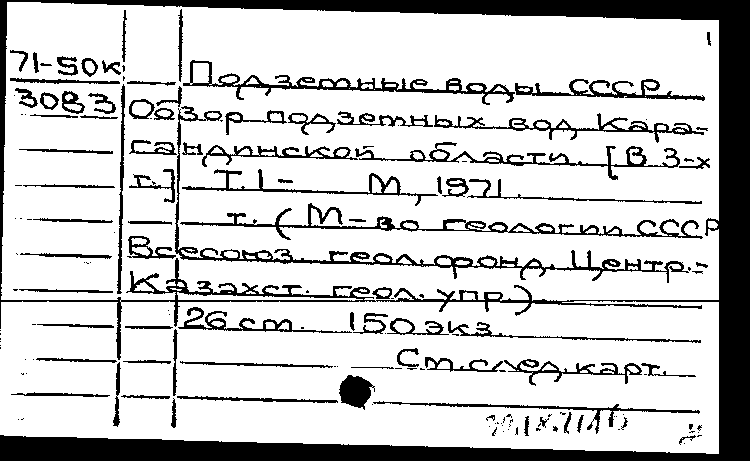 1
71-50к Подземные воды СССР.
3083 Обзор подземных вод Кара-
гандинской области. [В 3-х
т.] Т.1- М, 1971.
т. (М-во геологии СССР
Всесоюз. геол. фонд. Центр.-
Казахст. геол. упр.)
26 см. 150 экз.
См. след. карт.